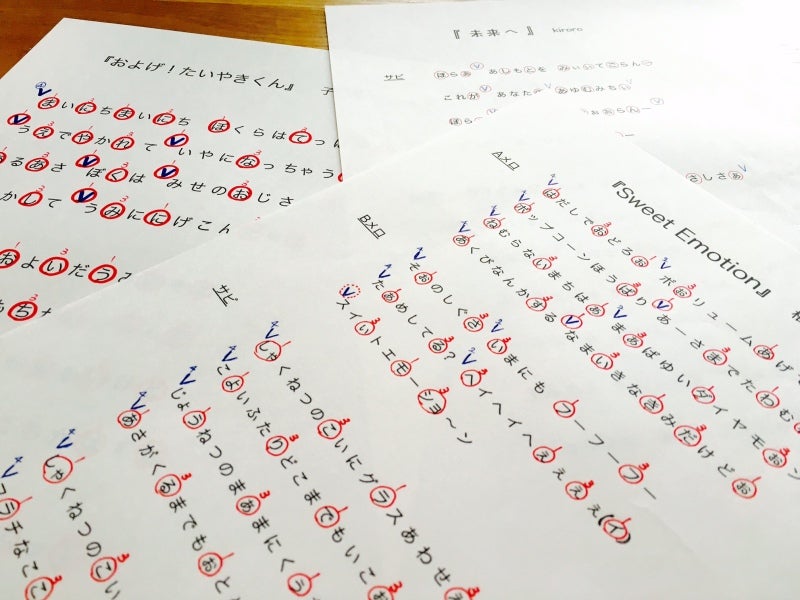 『およげ！たいやきくん』 子
まいにちまいにち ぼくらはてっ
うえでやかれて いやになっちゃう
るあさ ぼくは みせのおじさ
かして うみににげこん
およいだう
ち
『 未来へ 』 kiroro
サビ
ほらあ あしもとを みぃいてごらん
これが あなたの あゆむみちい
ほら
さしさあ
『Sweet Emotion』
Aメロ
はだしでおどろお ボおリューム あげ
ポップコーンほうばり あーさまでたわむ
ねむらないまちはあ まあばゆいダイヤモおン
あくびなんかするなまいきなきみだけどお
Bメロ
そおのしぐさ いまにも フーフーフー
たあめしてる？ ヘイヘイヘえええ(イ)
スイいトエモーショ～ン
サビ
しゃくねつのこいにグラスあわせえ
こよいふたりどこまでもいこお
じょうねつのまあまにくう
あさがくるまでもおと
しゃくねつのこい
ラチなこ